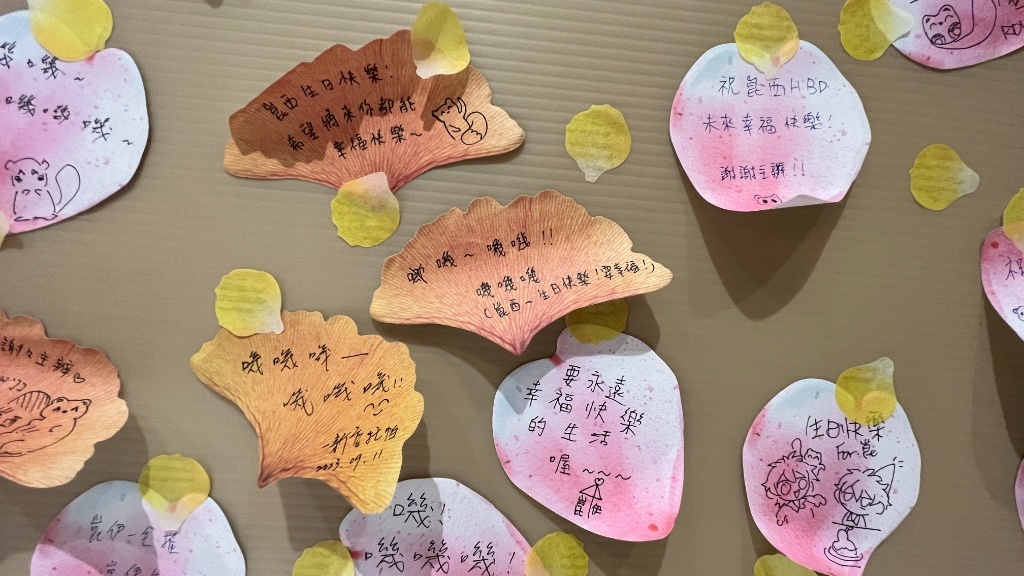 嘰嘰~
嘰嘰嘰~
崑西生日快樂!
希望將來你都能
幸福快樂~
祝崑西HBD
未來幸福快樂!
謝謝主辦!!
嘰嘰~嘰嘰!!
嘰嘰嘰
(崑西~生日快樂!要幸福!)
謝謝主辦♡
嘰嘰嘰—
嘰嘰嘰!!
2023.09.11
要永遠
幸福快樂
的生活
喔~~~
崑伊
生日快樂
For崑
崑伊一定
崑伊
嘰!
嘰嘰嘰!